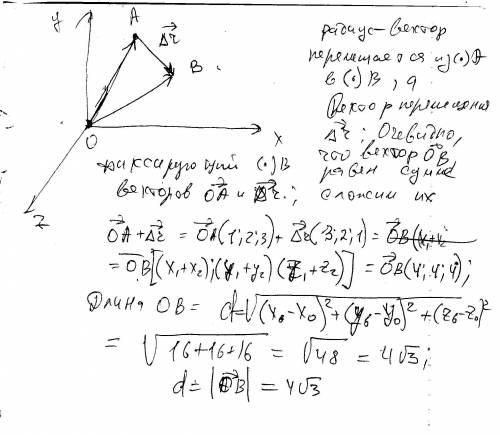 y A Δr⃗
радиус-вектор
перемещается из (·) A
B
в (·) B, а
Вектор перемещения
O X
Δr⃗; Очевидно,
Z
что вектор O⃗B
фиксирующий (·) B равен сумме
векторов O⃗A и Δr⃗; сложим их
O⃗A + Δr⃗ = O⃗A(1; 2; 3) + Δr⃗(3; 2; 1) = O⃗B(x₁+x₂
= O⃗B[(x₁+x₂); (y₁+y₂) (z₁+z₂)] = O⃗B(4; 4; 4);
Длина OB = d=√(x_в-x_0)²+(y_в-y_0)²+(z_в-z_0)²
= √16+16+16 = √48 = 4√3;
d = |O⃗B| = 4√3